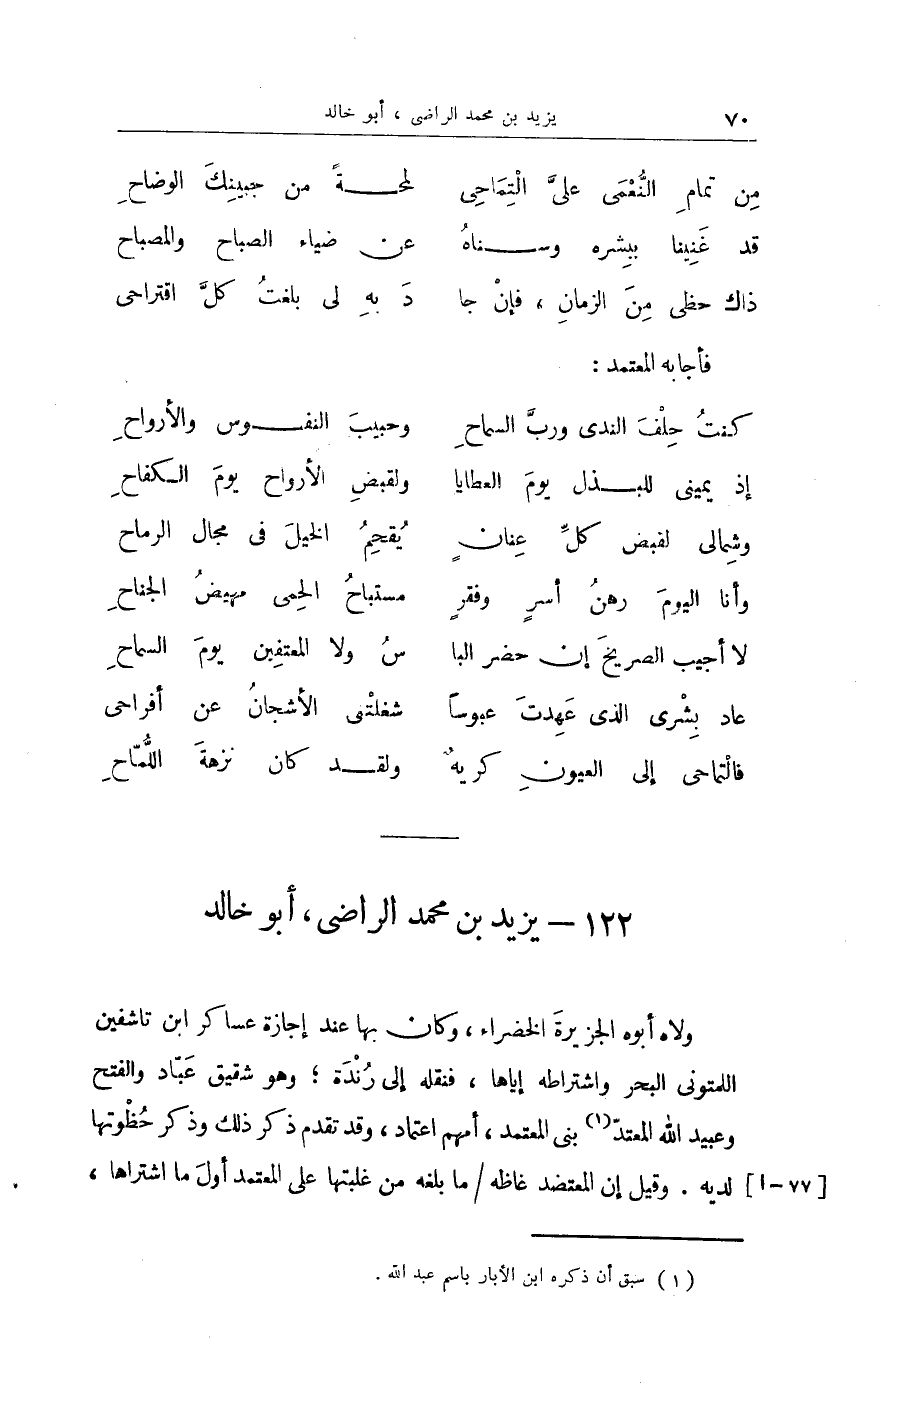 ٧٠ يزيد بن محمد الراضى ، أبو خالد
مِن تمامِ النُّعْمَى علىَّ الْتِمَاحِى لمحـــةً من جبينِكَ الوضاحِ
قد غَنِينا ببِشره وســـناهُ عن ضياء الصباح والمصباح
ذاك حظى مِنَ الزمانِ ، فإنْ جا دَ بهِ لى بلغتُ كلَّ اقتراحى
فأجابه المعتمد :
كنتُ حِلْفَ الندى وربَّ السماحِ وحبيبَ النفـــوس والأرواحِ
إذ يمينى للبـــذل يومَ العطايا ولقبضِ الأرواح يومَ الـكفاحِ
وشِمالى لقبض كلِّ عِنانٍ يُقحِمُ الخيلَ فى مجال الرماح
وأنا اليومَ رهنُ أسرٍ وفقرٍ مستباحُ الحِمى مهيضُ الجناحِ
لا أجيب الصريخَ إن حضر البا سُ ولا المعتفِين يومَ السماحِ
عاد بِشْرى الذى عَهِدتَ عبوساً شغلتْنى الأشجانُ عن أفراحى
فالْتماحى إلى العيونِ كريهٌ ولقـــد كان نزهةَ اللُّمّاحِ
١٢٢ — يزيد بن محمد الراضى ، أبو خالد
ولاه أبوه الجزيرةَ الخضراء ، وكان بها عند إجازة عساكر ابن تاشفين
اللمتونى البحر واشتراطه إياها ، فنقله إلى رُنْدَة ؛ وهو شقيق عَبّاد والفتح
وعبيد الله المعتدّ(١) بنى المعتمد ، أمهم اعتماد ، وقد تقدم ذكر ذلك وذكر حُظْوتها
[٧٧-ا] لديه . وقيل إن المعتضد غاظه / ما بلغه من غلبتها على المعتمد أولَ ما اشتراها ،
(١) سبق أن ذكره ابن الأبار باسم عبد الله .